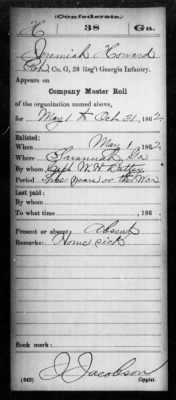 (Confederate.)
H 38 Ga.
Jeremiah Howard
Pvt, Co. G, 38 Reg't Georgia Infantry.
Appears on
Company Muster Roll
of the organization named above,
for May 1 to Oct 31, 1862.
Enlisted:
When May 1, 1862.
Where Savannah, Ga
By whom Capt W. H. Battey
Period Three years or the War
Last paid:
By whom
To what time , 186 .
Present or absent Absent
Remarks: Home sick
Book mark:
J Jacobson
(642) Copyist.